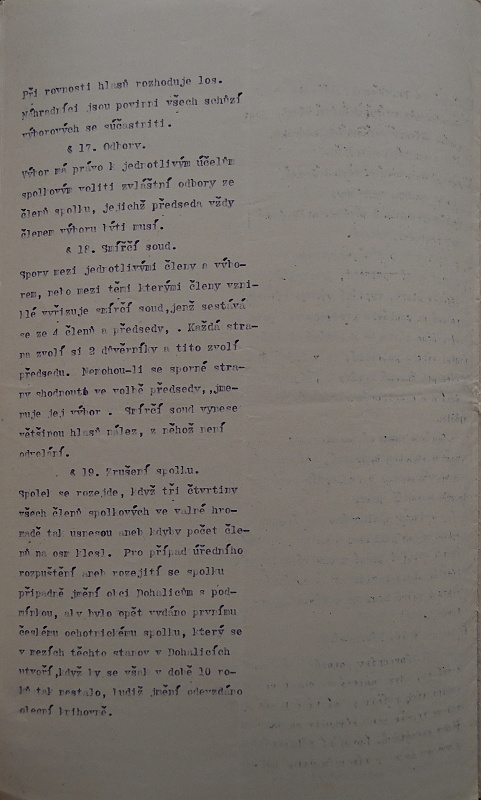 při rovnosti hlasů rozhoduje los.
Náhradníci jsou povinni všech schůzí
výborových se súčastniti.
§ 17. Odbory.
Výbor má právo k jednotlivým účelům
spolkovým voliti zvláštní odbory ze
členů spolku, jejichž předseda vždy
členem výboru býti musí.
§ 18. Smírčí soud.
Spory mezi jednotlivými členy a výbo-
rem, nebo mezi těmi kterými členy vzni-
klé vyřizuje smírčí soud,jenž sestává
se ze 4 členů a předsedy, . Každá stra-
na zvolí si 2 důvěrníky a tito zvolí
předsedu. Nemohou-li se sporné stra-
ny shodnouti ve volbě předsedy,,jme-
nuje jej výbor . Smírčí soud vynese
většinou hlasů nález, z něhož není
odvolání.
§ 19. Zrušení spolku.
Spolek se rozejde, když tři čtvrtiny
všech členů spolkových ve valné hro-
madě tak usnesou aneb kdyby počet čle-
nů na osm klesl. Pro případ úředního
rozpuštění aneb rozejití se spolku
připadne jmění obci Dohalicům s pod-
mínkou, aby bylo opět vydáno prvnímu
českému ochotnickému spolku, který se
v mezích těchto stanov v Dohalicích
utvoří,když by se však v době 10 ro-
ků tak nestalo, budiž jmění odevzdáno
obecní knihovně.